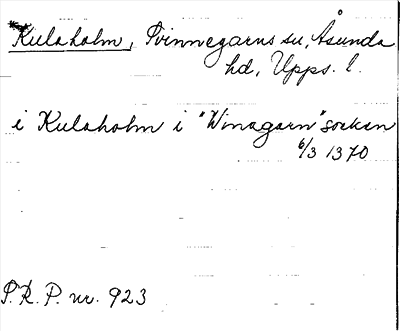 *Kulaholm, Tvinnegarns sn, Åsunda
hd, Upps. l.
i Kulaholm i "Winagarn" sockan
6/3 1370
S.R.P. nr. 923